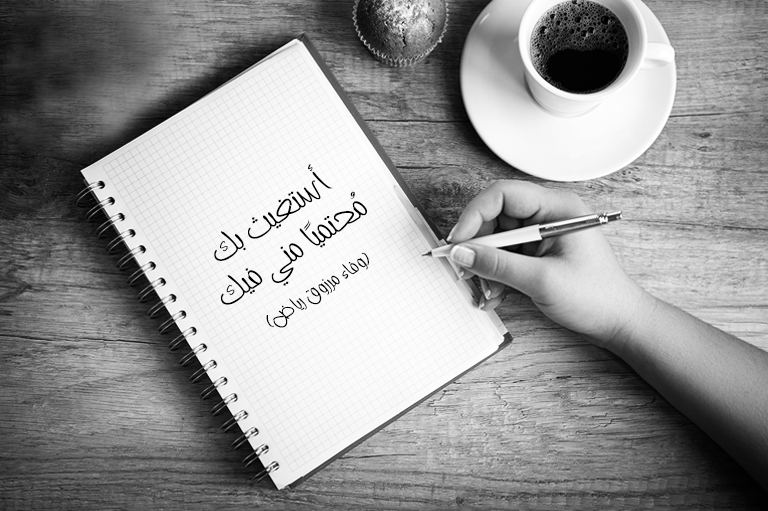 أستغيث بك
مُحتميًا مني فيك
(وفاء مرزوق رياض)